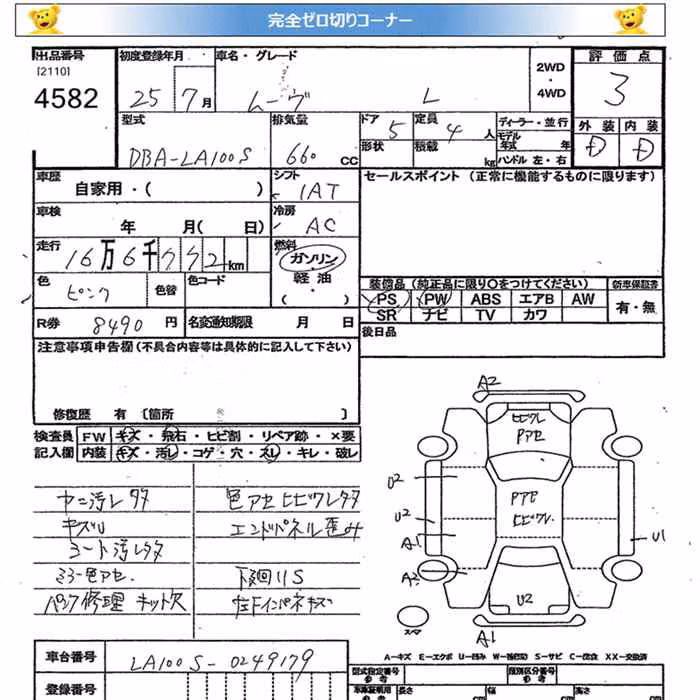 完全ゼロ切りコーナー
出品番号 初度登録年月 車名・グレード 2WD・4WD 評価点
[2110]
4582 25 7月 ムーヴ L 3
型式 排気量 ドア 5 定員 4人 ディーラー・並行 外装 内装
DBA-LA100S 660 CC 形状 積載 kg モデル年式 年 ハンドル 左・右 D D
車歴 自家用・( ) シフト IAT セールスポイント(正常に機能するものに限ります)
車検 年 月(日) 冷房 AC
走行 16万6千772km 燃料 ガソリン・軽油・( )
色 ピンク 色替 色コード 装備品(純正品に限り○をつけてください) 新車保証書
PS PW ABS エアB AW 有・無
SR ナビ TV カワ
R券 8490円 名変通知期限 月 日 後日品
注意事項申告欄(不具合内容等は具体的に記入して下さい)
修復歴 有 [箇所 ]
検査員 FW キズ・飛石・ヒビ割・リペア跡・×要
記入欄 内装 キズ・汚レ・コゲ・穴・スレ・キレ・破レ
ヤニ汚レタタ 色アセヒビワレタタ
キズU エンドパネル歪
シート汚レタタ
ミラー色アセ 下回リS
パンク修理キット欠 左ドインパネキズ
A2
ヒビワレ
Pアセ
U2
Pアセ
ヒビワレ
U2
A1
U1
A2
U2
スペア
A1
A-キズ E-エクボ U-凹み W-補修跡 S-サビ C-腐食 XX-交換済
車台番号 LA100S-0249179
型式指定番号 参考 類別区分番号 参考
登録番号
車庫証明用 参考 長さ cm 幅 cm 高さ cm